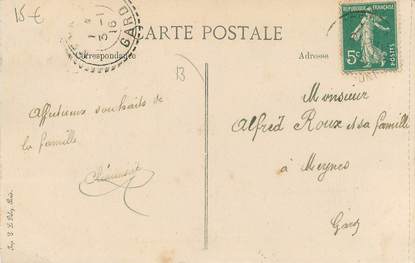 15 €
GARD
3-1
16
CARTE POSTALE
Correspondance
Adresse
RÉPUBLIQUE FRANÇAISE
5c
POSTES
13
Affectueux souhaits de
la famille
Monsieur
Alfred Roux et sa famille
à Meynes
Gard